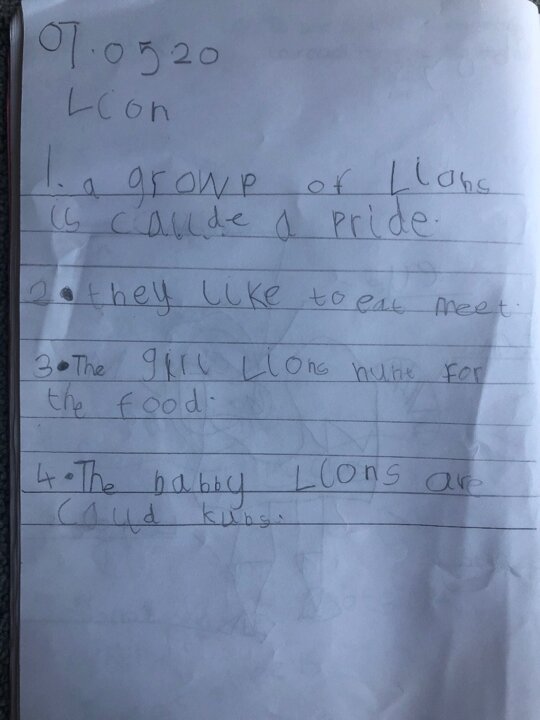 07.05 20
Lion
1. a growp of Lions
is caulde a pride.
2. they like to eat meet.
3. The girl Lions hunt for
the food.
4. The babby Lions are
Caud kubs.